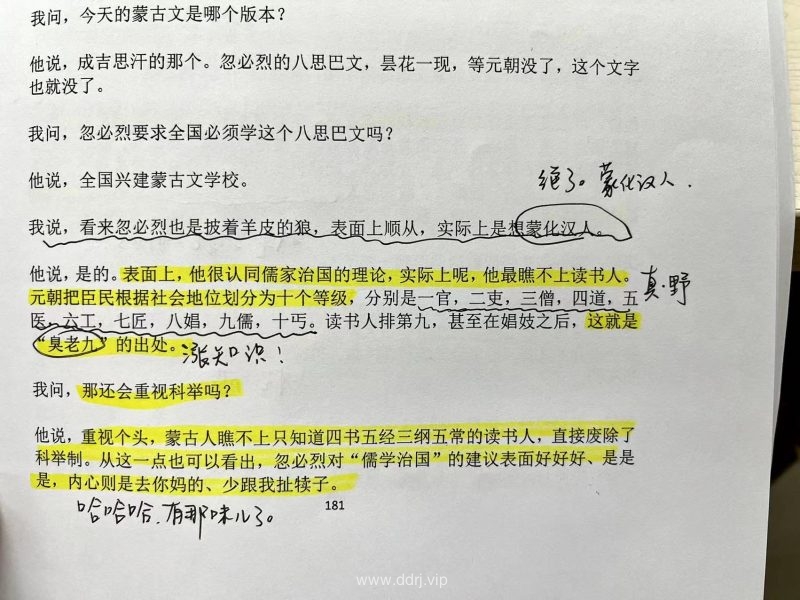 我问，今天的蒙古文是哪个版本？
他说，成吉思汗的那个。忽必烈的八思巴文，昙花一现，等元朝没了，这个文字
也就没了。
我问，忽必烈要求全国必须学这个八思巴文吗？
他说，全国兴建蒙古文学校。
绝了。蒙化汉人.
我说，看来忽必烈也是披着羊皮的狼，表面上顺从，实际上是想蒙化汉人。
他说，是的。表面上，他很认同儒家治国的理论，实际上呢，他最瞧不上读书人。
真·野
元朝把臣民根据社会地位划分为十个等级，分别是一官，二吏，三僧，四道，五
医，六工，七匠，八娼，九儒，十丐。读书人排第九，甚至在娼妓之后，这就是
“臭老九”的出处。
涨知识！
我问，那还会重视科举吗？
他说，重视个头，蒙古人瞧不上只知道四书五经三纲五常的读书人，直接废除了
科举制。从这一点也可以看出，忽必烈对“儒学治国”的建议表面好好好、是是
是，内心则是去你妈的、少跟我扯犊子。
哈哈哈，有那味儿了。
181
www.ddrj.vip